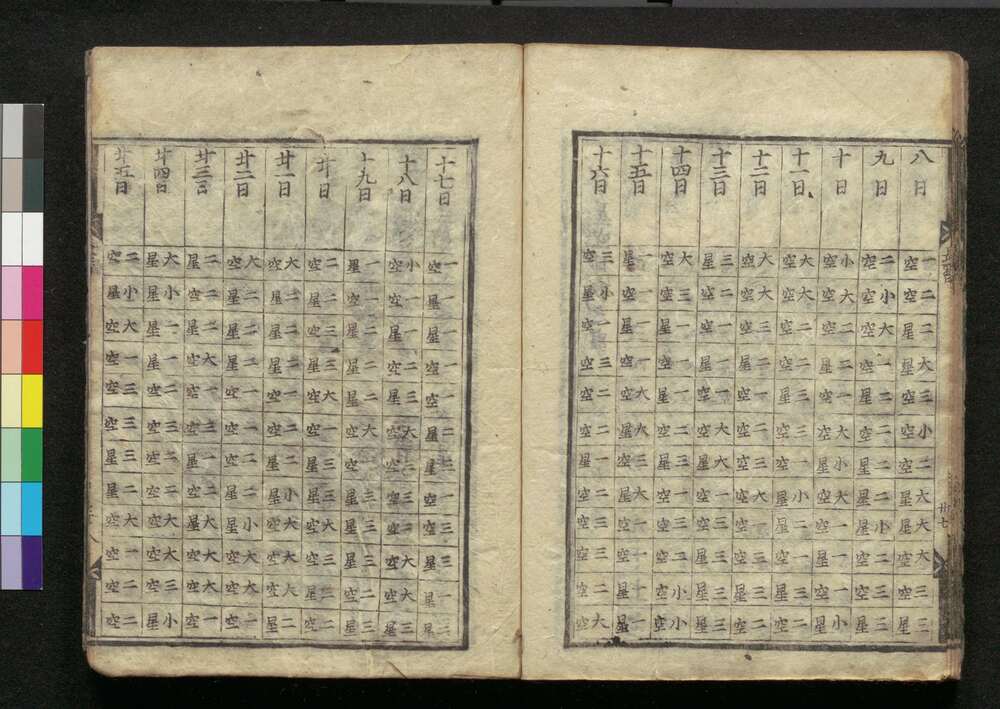 八日 一空 二空 二星 大星 三空 小空 二空 大星 大星 大空 三空 三星
九日 二空 小空 大空 一空 二星 二空 二星 二星 小星 一空 三空 三星
十日 小空 大空 二空 二星 一空 大空 小星 大空 一空 一星 一空 小星
十一日 大空 大空 二空 二空 三星 三空 一空 小星 二星 一空 三星 二星
十二日 大空 大空 三空 二星 一星 二空 三空 大空 一空 三空 三星 二空
十三日 三星 二空 一空 一星 一空 大空 大星 一空 三空 三星 三星 三星
十四日 大空 三空 一星 一空 一星 二空 三星 一空 二空 二空 小空 小空
十五日 一星 一星 一星 一空 大空 大星 三空 大星 一空 一空 一星 一星
十六日 三空 小星 一空 三空 二空 二空 一星 二空 三空 三空 二空 大空
廿七
十七日 一空 一星 一星 一空 一空 二星 二星 一空 三空 三星 一星 二星
十八日 小空 一空 一星 二空 三星 大空 二空 三空 二空 大空 大空 三星
十九日 一星 一空 二星 二星 二星 大空 空 三星 三星 三星 二空 三星
廿日 二空 二星 三空 三星 大空 一空 三星 三星 大空 三空 二星 二空
廿一日 大空 二星 二星 二星 一空 二空 二星 小星 大空 大空 大空 二星
廿二日 大空 二星 二星 二星 一空 一空 二空 二星 小星 大空 大空 一空
廿三日 二星 二空 二星 大空 一空 三空 一星 二空 大星 大空 大空 一空
廿四日 大星 小星 一星 一星 二空 三空 二空 二空 大空 大空 三空 小星
廿五日 二空 小星 大空 一空 三空 三空 三星 二星 大空 一空 二空 二空